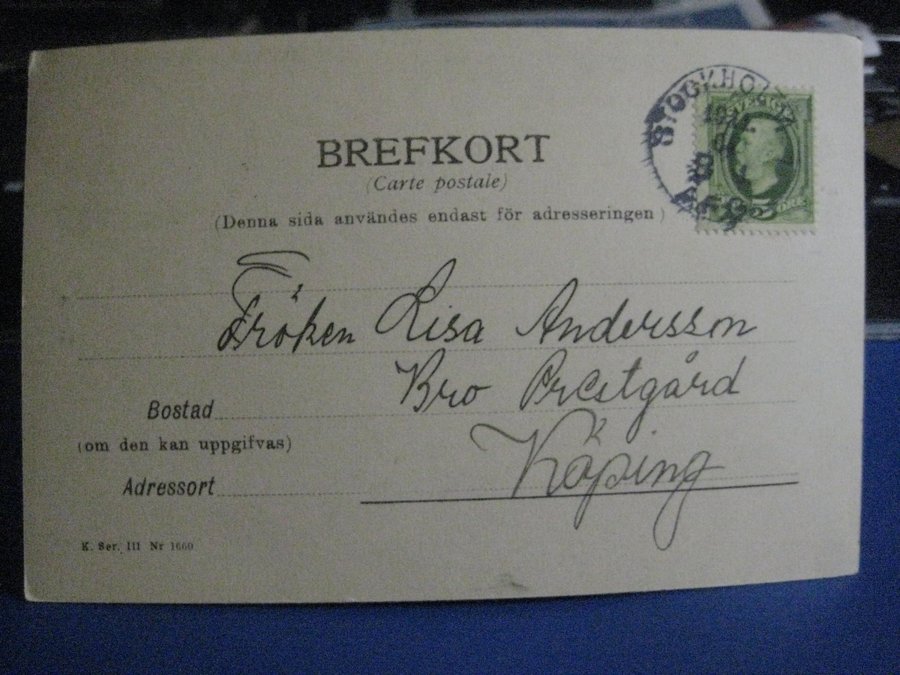 BREFKORT
(Carte postale)
(Denna sida användes endast för adresseringen)
STOCKHOLM
Fröken Lisa Andersson
Bro Prestgård
Bostad
(om den kan uppgifvas)
Köping
Adressort
K. Ser. III Nr 1660